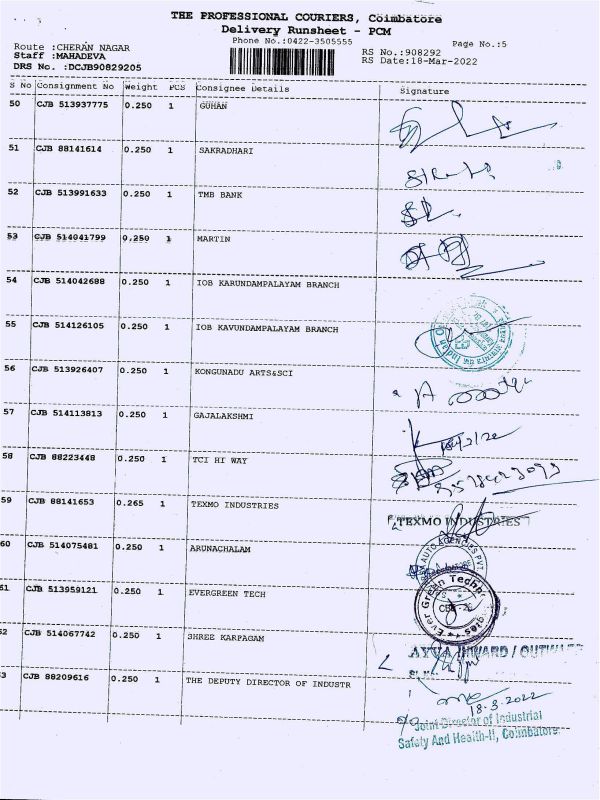 THE PROFESSIONAL COURIERS, Coimbatore
Delivery Runsheet - PCM
Phone No.:0422-3505555
Page No.:5
Route :CHERAN NAGAR
RS No.:908292
Staff :MAHADEVA
RS Date:18-Mar-2022
DRS No. :DCJB90829205
S No Consignment No Weight PCS Consignee Details Signature
50 CJB 513937775 0.250 1 GUHAN
51 CJB 88141614 0.250 1 SAKRADHARI
52 CJB 513991633 0.250 1 TMB BANK
53 CJB 514041799 0.250 1 MARTIN
54 CJB 514042688 0.250 1 IOB KARUNDAMPALAYAM BRANCH
55 CJB 514126105 0.250 1 IOB KAVUNDAMPALAYAM BRANCH
56 CJB 513926407 0.250 1 KONGUNADU ARTS&SCI
57 CJB 514113813 0.250 1 GAJALAKSHMI
58 CJB 88223448 0.250 1 TCI HI WAY
59 CJB 88141653 0.265 1 TEXMO INDUSTRIES
TEXMO INDUSTRIES
60 CJB 514075481 0.250 1 ARUNACHALAM
AUTO AGENCIES PVT
51 CJB 513959121 0.250 1 EVERGREEN TECH
Ever Green Technologies
52 CJB 514067742 0.250 1 SHREE KARPAGAM
INWARD /
3 CJB 88209616 0.250 1 THE DEPUTY DIRECTOR OF INDUSTR
18-3-2022
Joint Director of Industrial
Safety And Health-II, Coimbatore